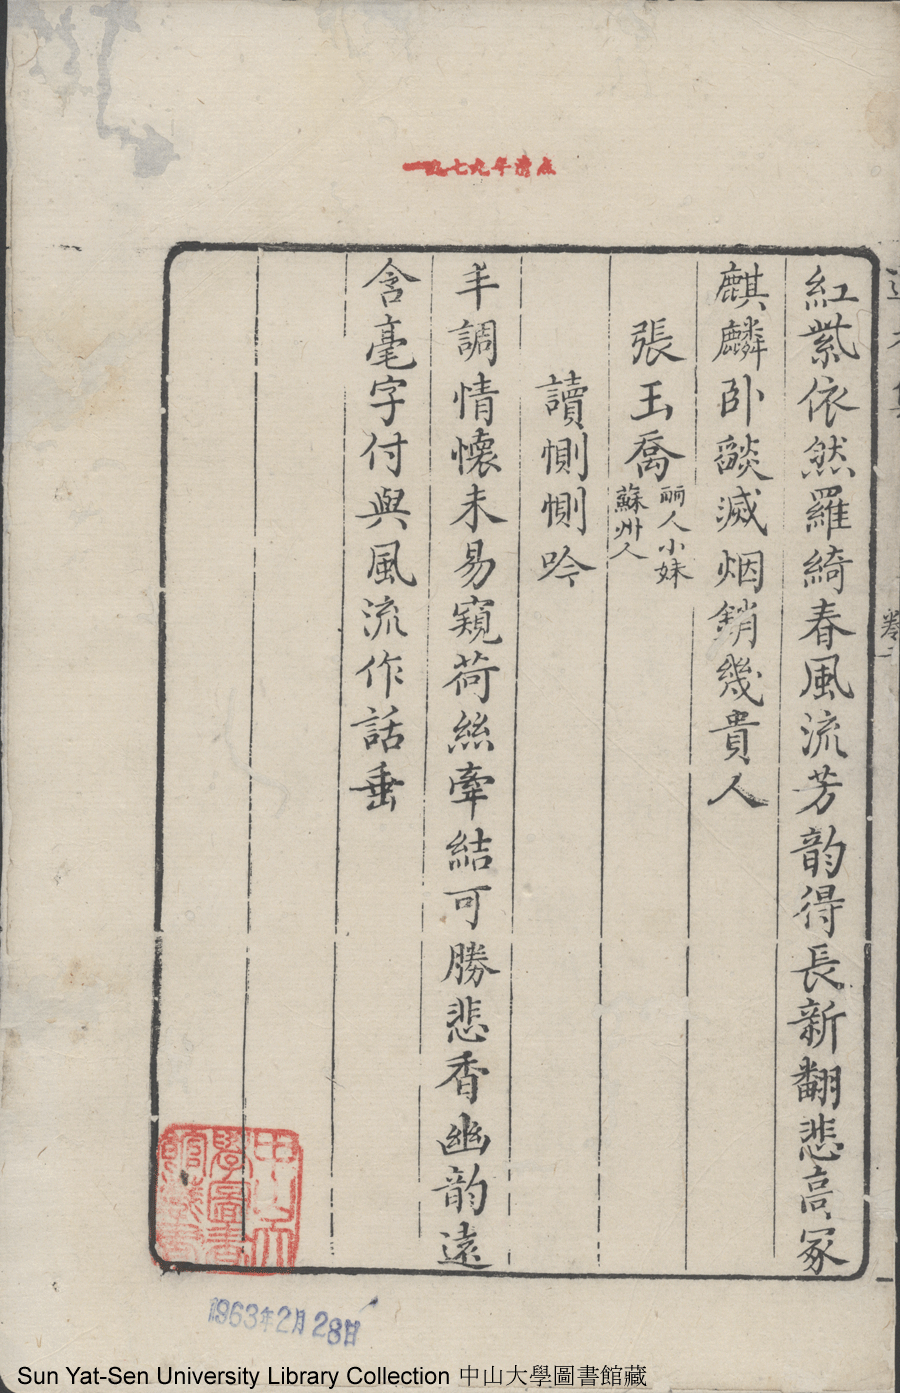 一九七九年清点
紅紫依然羅綺春風流芳韵得長新翻悲高冢
麒麟卧燄滅烟銷幾貴人
張玉喬
丽人小妹
蘇州人
讀惻惻吟
半調情懷未易窺荷絲牽結可勝悲香幽韵遠
含毫字付與風流作話垂
中山大
學圖書
館藏書
1963年2月28日
Sun Yat-Sen University Library Collection 中山大學圖書館藏